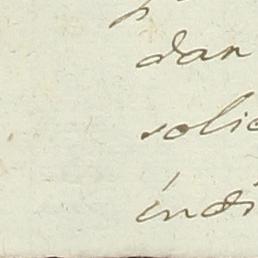 dan
solic
indi